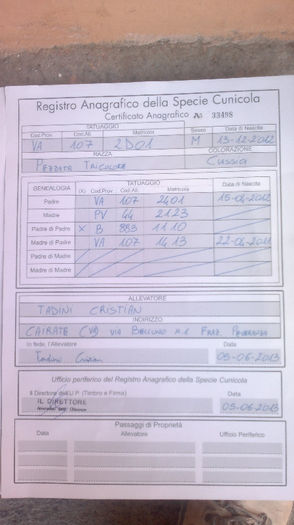 Registro Anagrafico della Specie Cunicola
Certificato Anagrafico A 33498
TATUAGGIO
Cod.Prov. Cod.All. Matricola Sesso Data di Nascita
VA 107 2D01 M 13-12-2012
RAZZA COLORAZIONE
PEZZATA TRICOLORE
GENEALOGIA TATUAGGIO Data di Nascita
(X) Cod.Prov Cod.All. Matricola
Padre VA 107 2401
Madre PV 44 2123
Padre di Padre X B 883 1110
Madre di Padre VA 107 1413
Padre di Madre
Madre di Madre
ALLEVATORE
TADINI CRISTIAN
INDIRIZZO
CAIRATE (VA) VIA BELLUNO
In fede, l'Allevatore Data
Tadini Cristian 05-06-2013
Ufficio periferico del Registro Anagrafico della Specie Cunicola
Il Direttore dell'U.P. (Timbro e Firma) Data
IL DIRETTORE 05-06-2013
Passaggi di Proprietà
Data Allevatore Ufficio Periferico